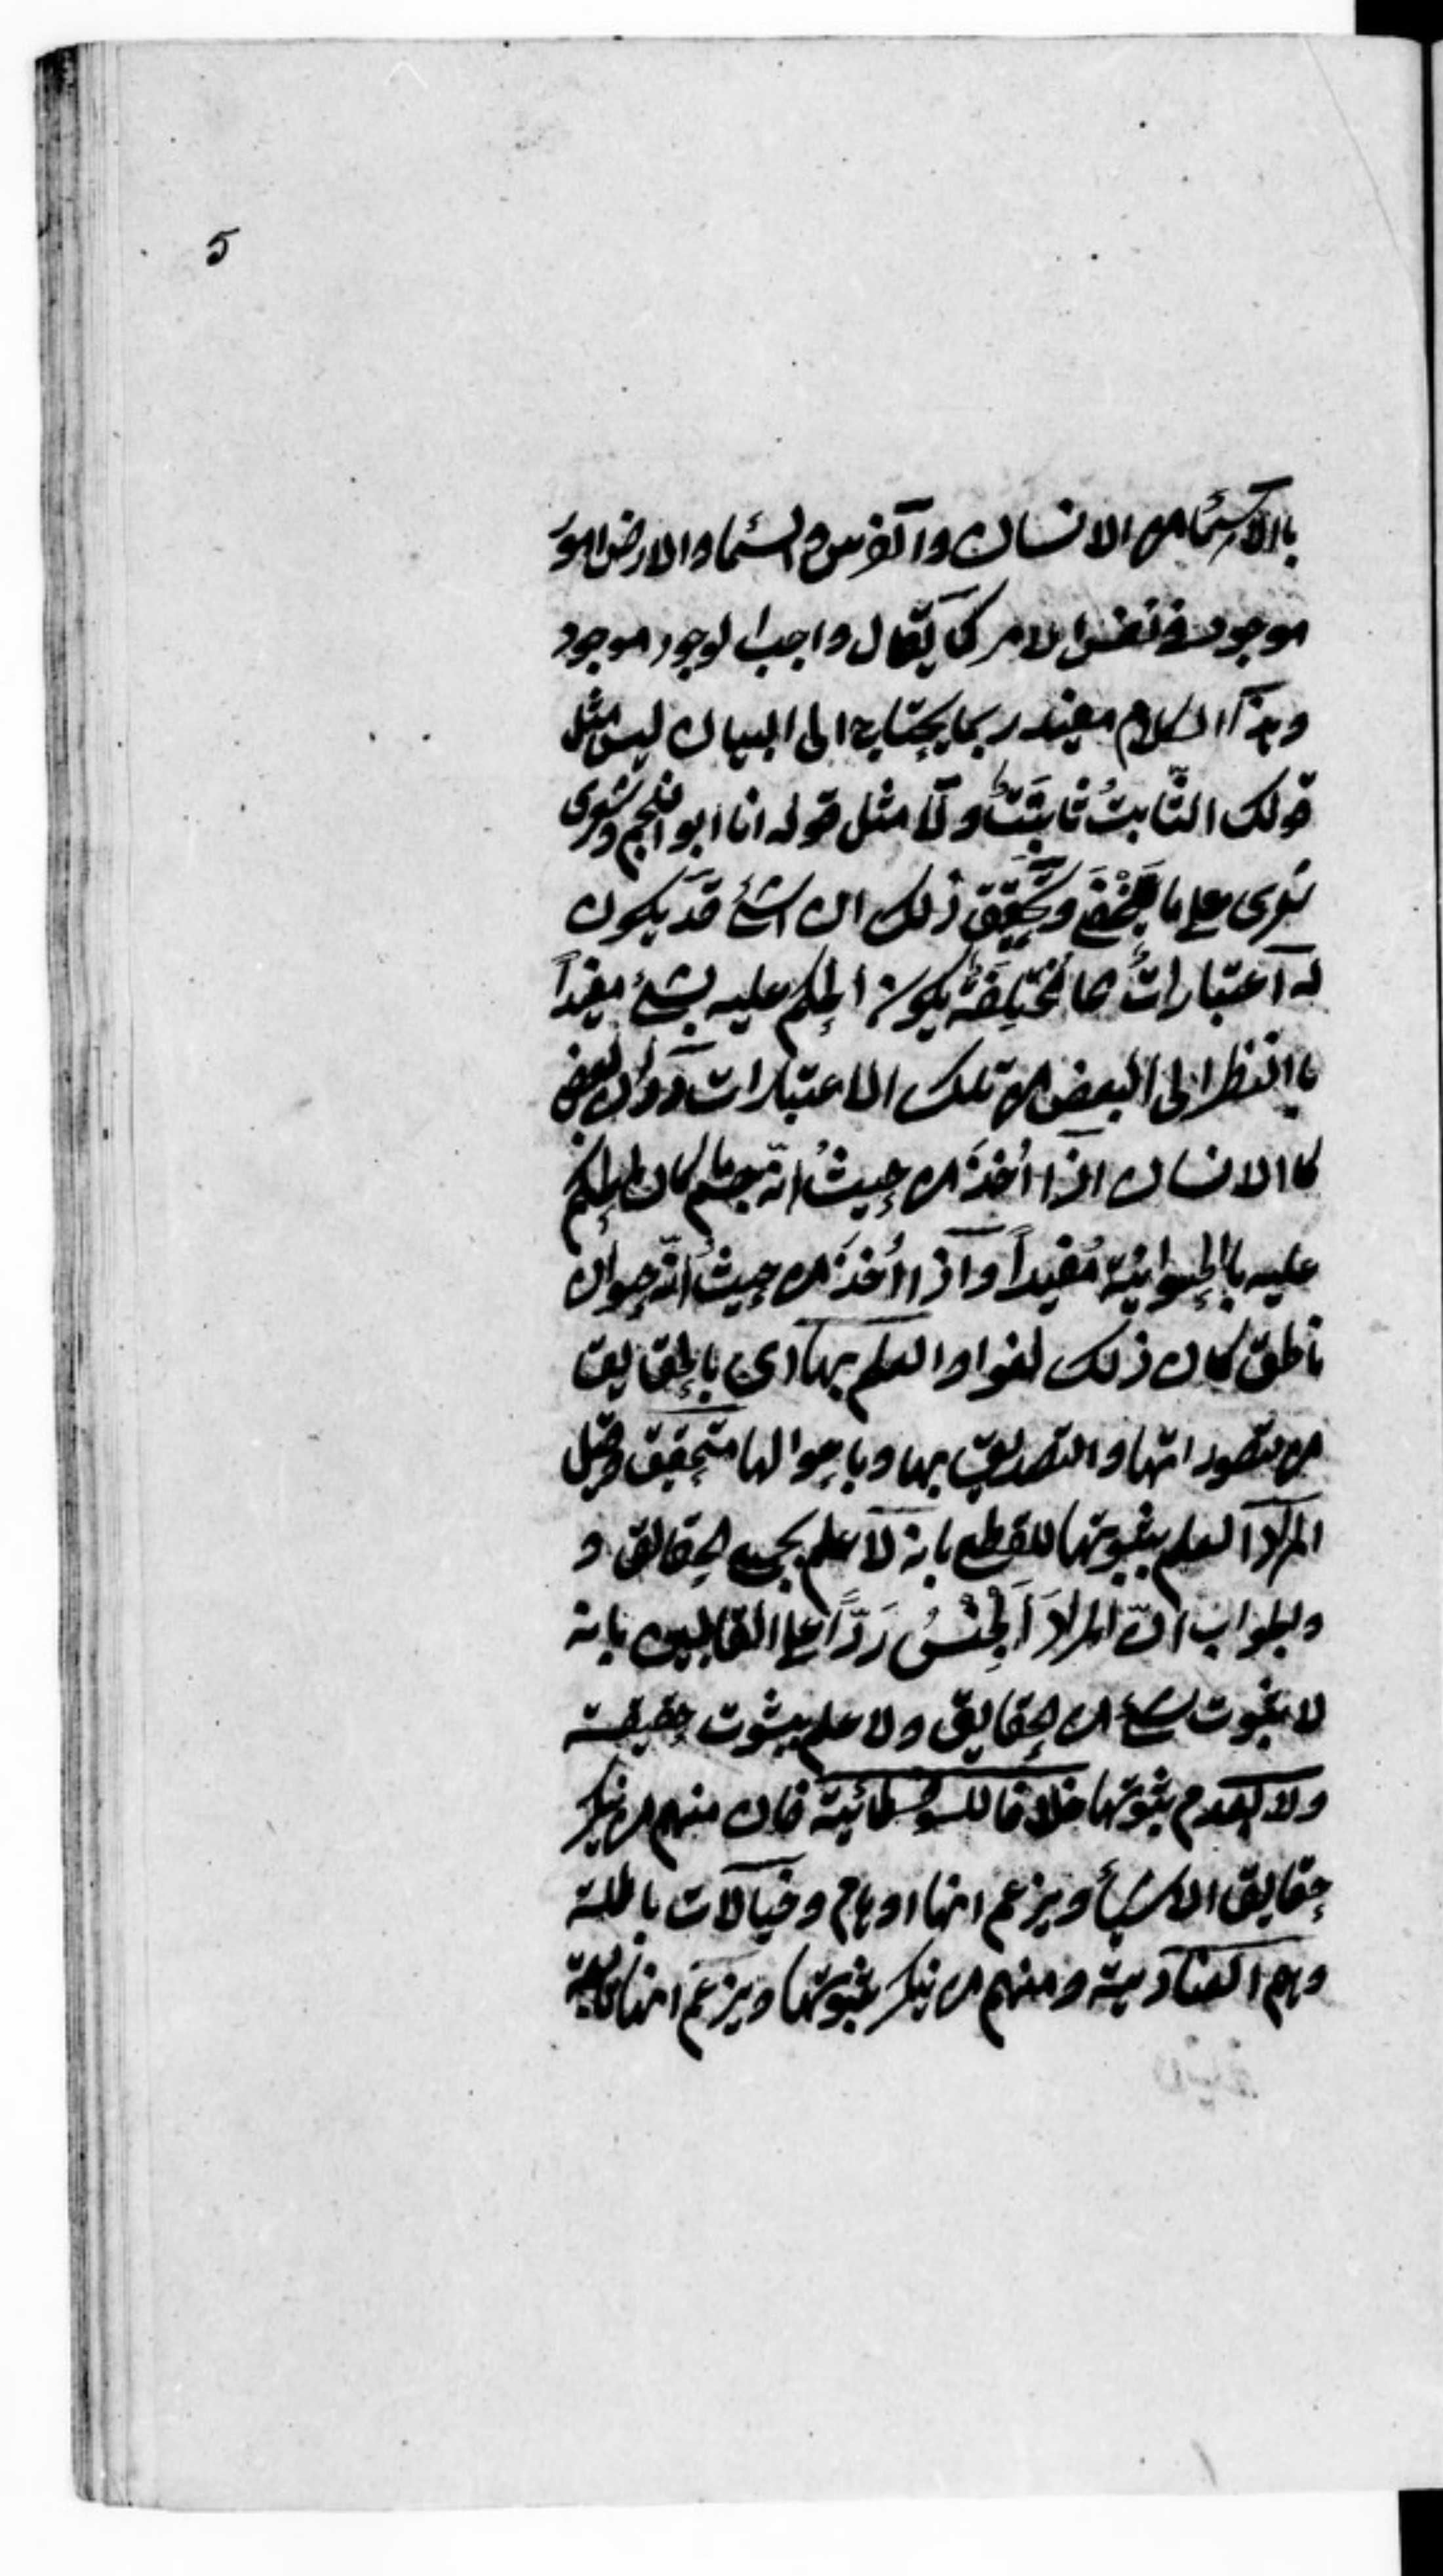 5
بالاسماء من الانسان والفرس والسماء والارض امور
موجود في نفس الامر كما يقال واجب الوجود موجود
وهذا الكلام مفيد ربما يحتاج الى البيان ليس مثل
قولك الثَّابتُ ثابتٌ ولا مثل قوله انا ابو النجم وشعرى
شعرى على ما يخفى وتحقيق ذلك ان الشئ قد يكون
له اعتباراتٌ مختلفةٌ يكون الحكم عليه بشئ مفيداً
باالنظر الى البعض من تلك الاعتبارات دون البعض
كاالانسان اذا اُخذ من حيثُ انّه جسم ما كان الحكم
عليه باالحيوانيّة مُفيداً واذا اُخذ من حيثُ انّه حيوان
ناطق كان ذلك لغوا والعلم بها اى بالحقايق
من تصوراتها والتصديق بها وباحوالها متحقق وقيل
المراد العلم بثبوتها للقطع بانه لا علم بجميع الحقائق و
والجواب انّ المرادَ الجِنْسُ رَدّاً على القايلين بانه
لا ثبوت لشئ من الحقايق ولا علم بثبوت حقيقته
ولا بعدم ثبوتها خلافا للسوفسطائية فان منهم من ينكر
حقايق الاشيأ ويزعم انها اوهام وخيالات باطلة
وهم العنادية ومنهم من ينكر ثبوتها ويزعم انها تابعة